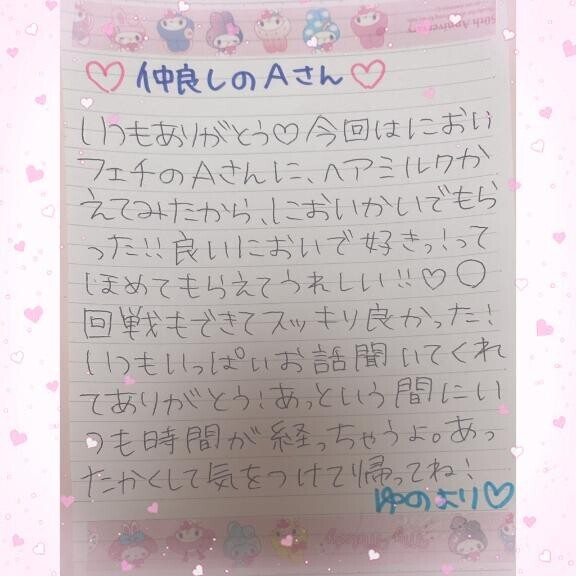 50th Anniversary
♡ 仲良しのAさん ♡
いつもありがとう♡今回はにおい
フェチのAさんに、ヘアミルクか
えてみたから、においかいでもら
った!!良いにおいで好きっ!って
ほめてもらえてうれしい!!♡○
回戦もできてスッキリ良かった!
いつもいっぱいお話聞いてくれ
てありがとう!あっという間にい
つも時間が経っちゃうよ。あっ
たかくして気をつけて帰ってね!
ゆのより♡
My Melody